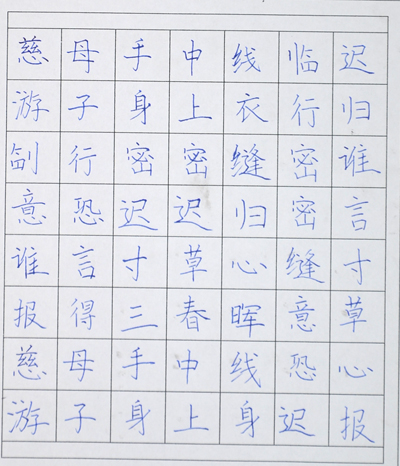 慈母手中线临迟
游子身上衣行归
行密密缝密谁
意恐迟迟归密言
谁言寸草心缝寸
报得三春晖意草
慈母手中线恐心
游子身上身迟报